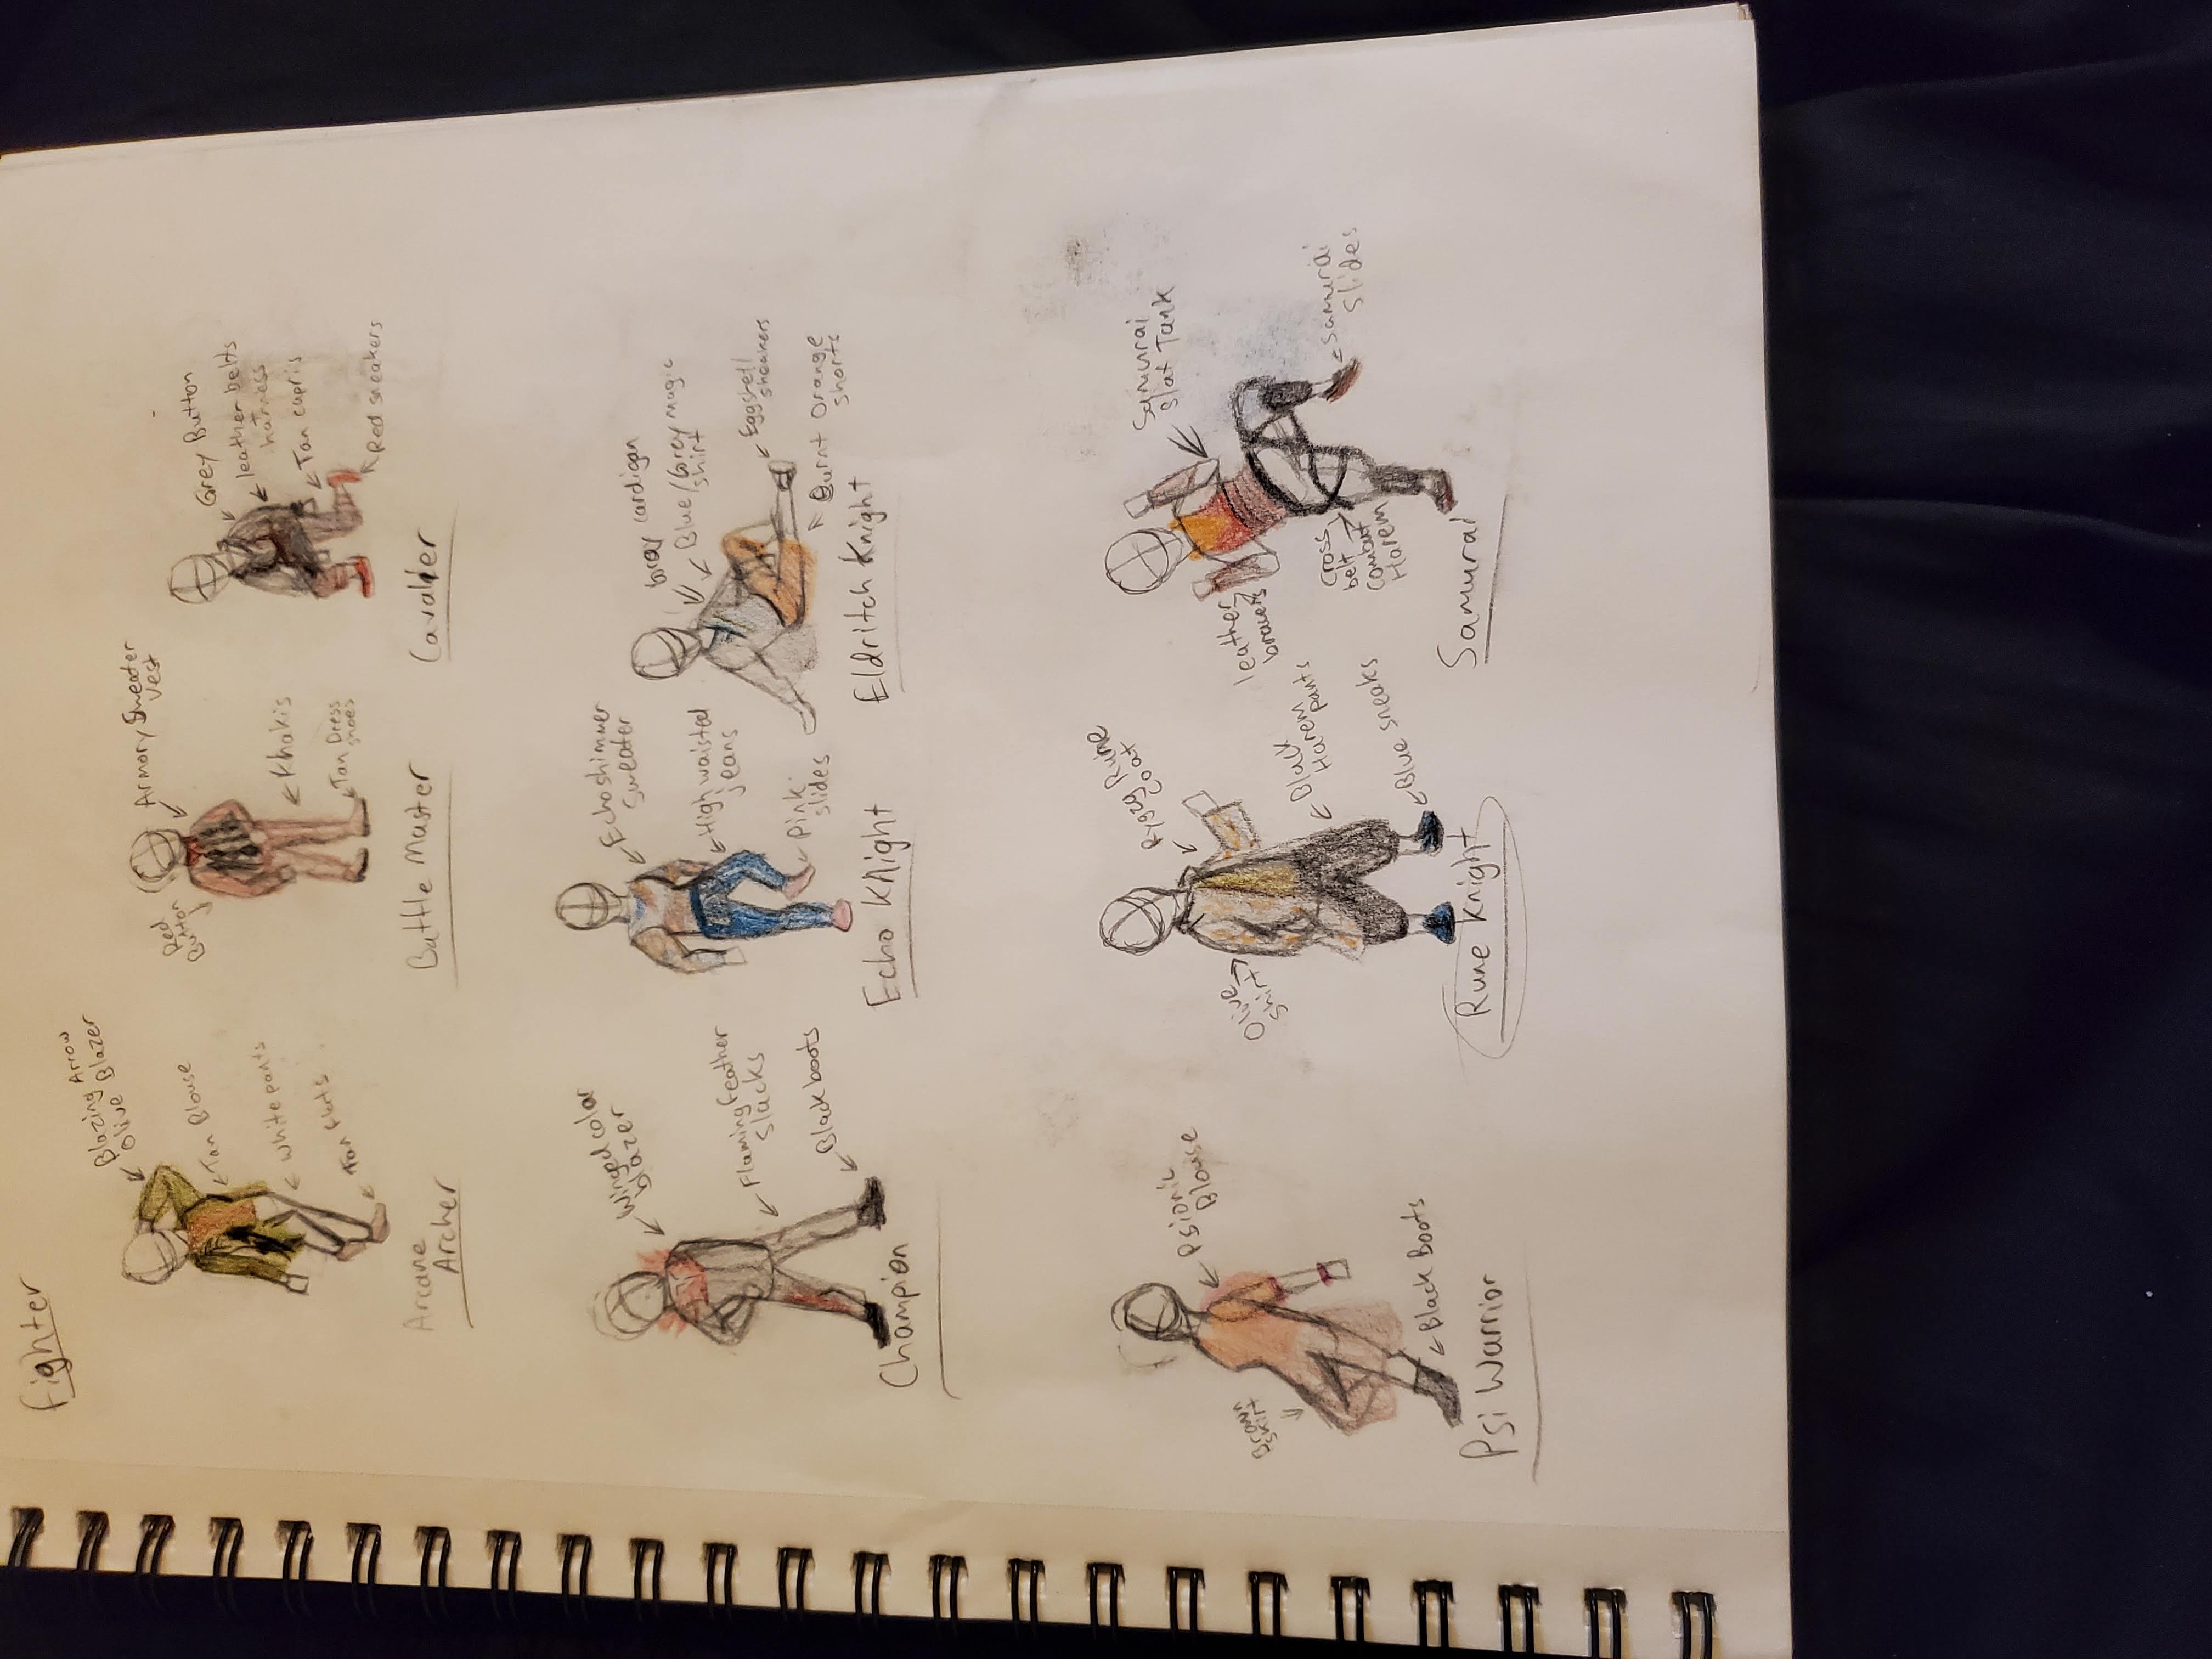 Fighter
Blazing Arrow
Olive Blazer
Tan Blouse
White pants
Tan flats
Arcane
Archer
Red
Button
Armory Sweater
Vest
Khakis
Tan Dress
shoes
Battle Master
Grey Button
leather belts
harness
Tan capris
Red sneakers
Cavalier
Winged color
blazer
Flaming Feather
Slacks
Black boots
Champion
Echo shimmer
Sweater
High waisted
jeans
Pink
slides
Echo Knight
Gray cardigan
Blue/Grey magic
shirt
Eggshell
sneakers
Burnt Orange
shorts
Eldritch Knight
Psionic
Blouse
Brown
skirt
Black Boots
Psi Warrior
Rune
coat
Olive
shirt
Black
Harem
pants
Blue sneaks
Rune Knight
Samurai
Slat Tank
leather
bracers
Cross
belt
combat
Harem
Samurai
Slides
Samurai